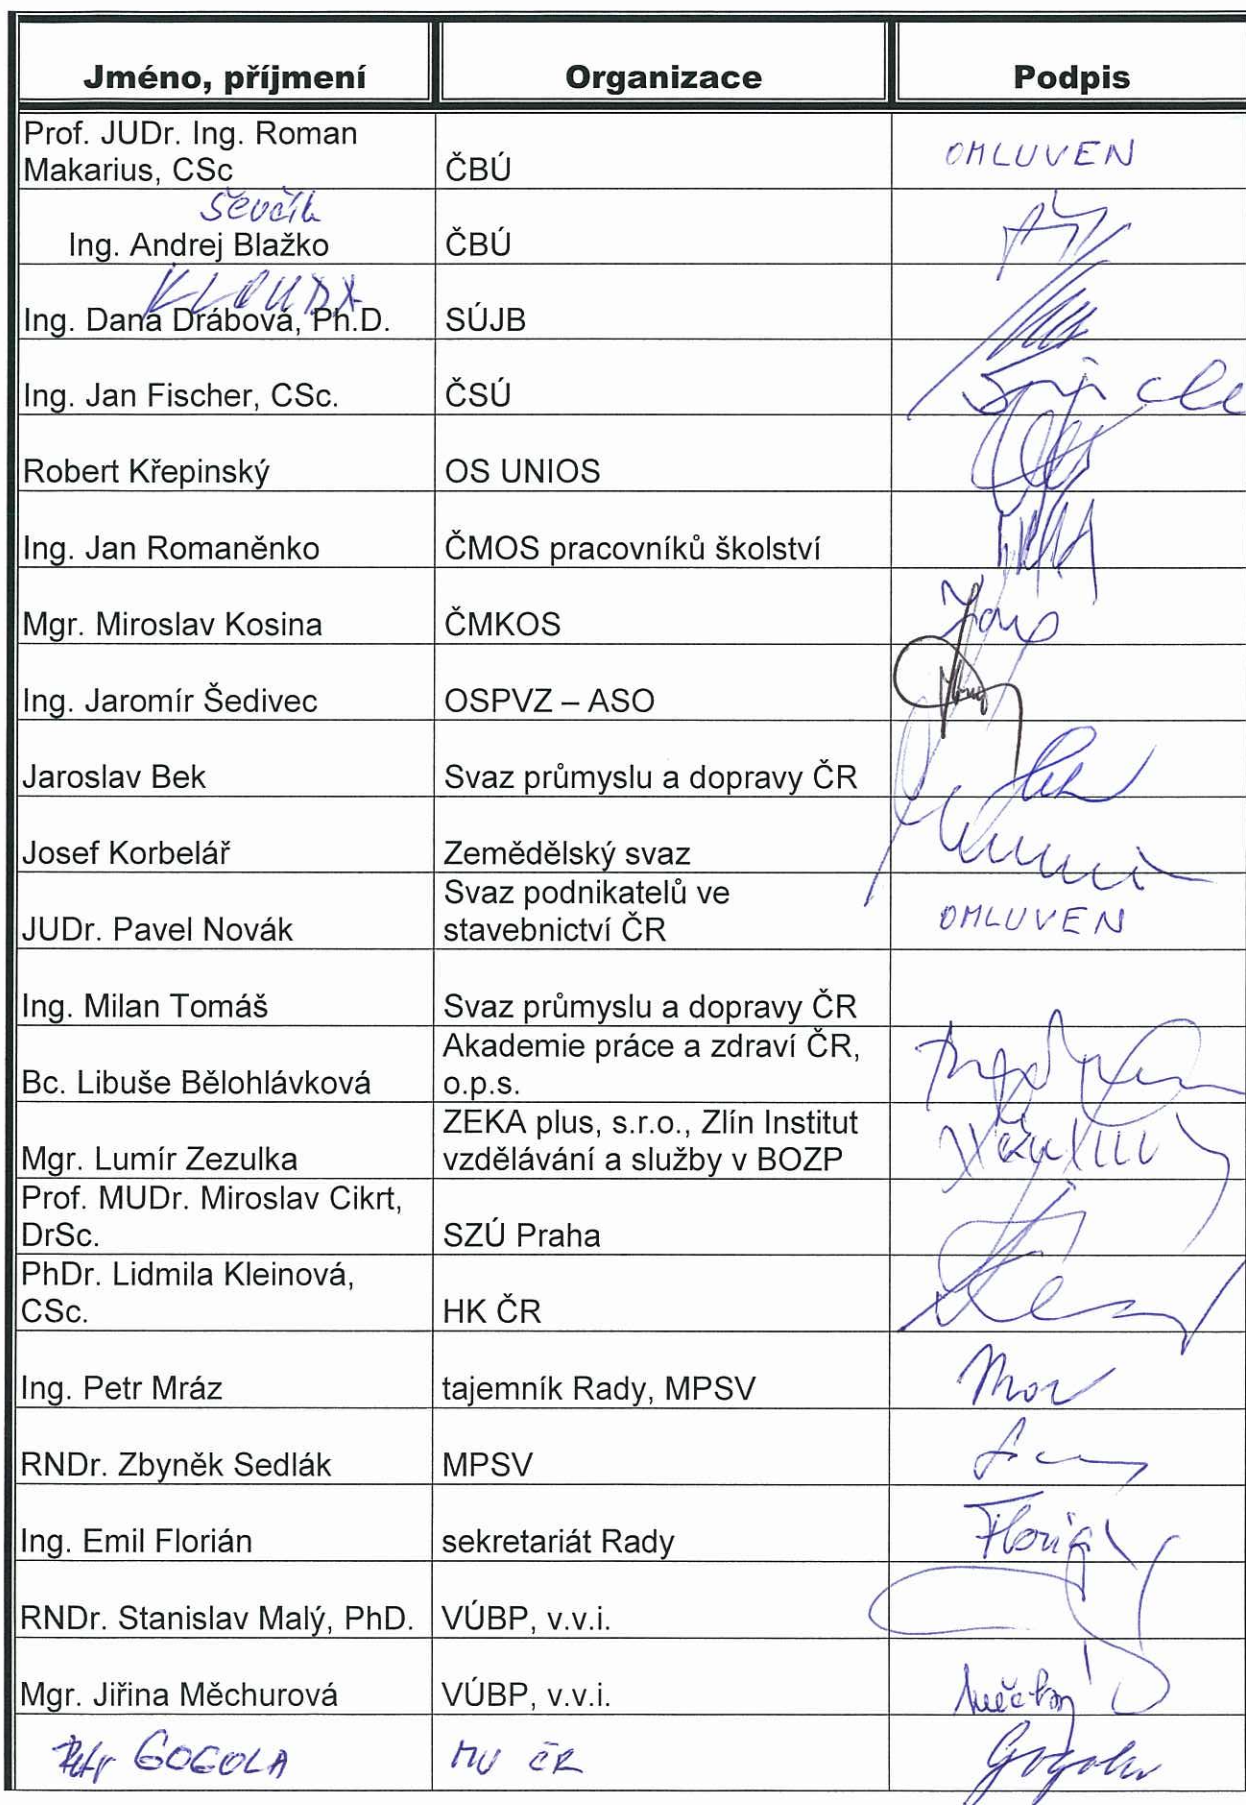 Jméno, příjmení Organizace Podpis
Prof. JUDr. Ing. Roman
Makarius, CSc ČBÚ OMLUVEN
Ševčík
Ing. Andrej Blažko ČBÚ
KLOUDA
Ing. Dana Drábová, Ph.D. SÚJB
Ing. Jan Fischer, CSc. ČSÚ
Robert Křepinský OS UNIOS
Ing. Jan Romaněnko ČMOS pracovníků školství
Mgr. Miroslav Kosina ČMKOS
Ing. Jaromír Šedivec OSPVZ – ASO
Jaroslav Bek Svaz průmyslu a dopravy ČR
Josef Korbelář Zemědělský svaz
Svaz podnikatelů ve
JUDr. Pavel Novák stavebnictví ČR OMLUVEN
Ing. Milan Tomáš Svaz průmyslu a dopravy ČR
Akademie práce a zdraví ČR,
Bc. Libuše Bělohlávková o.p.s.
ZEKA plus, s.r.o., Zlín Institut
Mgr. Lumír Zezulka vzdělávání a služby v BOZP
Prof. MUDr. Miroslav Cikrt,
DrSc. SZÚ Praha
PhDr. Lidmila Kleinová,
CSc. HK ČR
Ing. Petr Mráz tajemník Rady, MPSV
RNDr. Zbyněk Sedlák MPSV
Ing. Emil Florián sekretariát Rady Florián
RNDr. Stanislav Malý, PhD. VÚBP, v.v.i.
Mgr. Jiřina Měchurová VÚBP, v.v.i.
Petr GOGOLA MV ČR Gogola